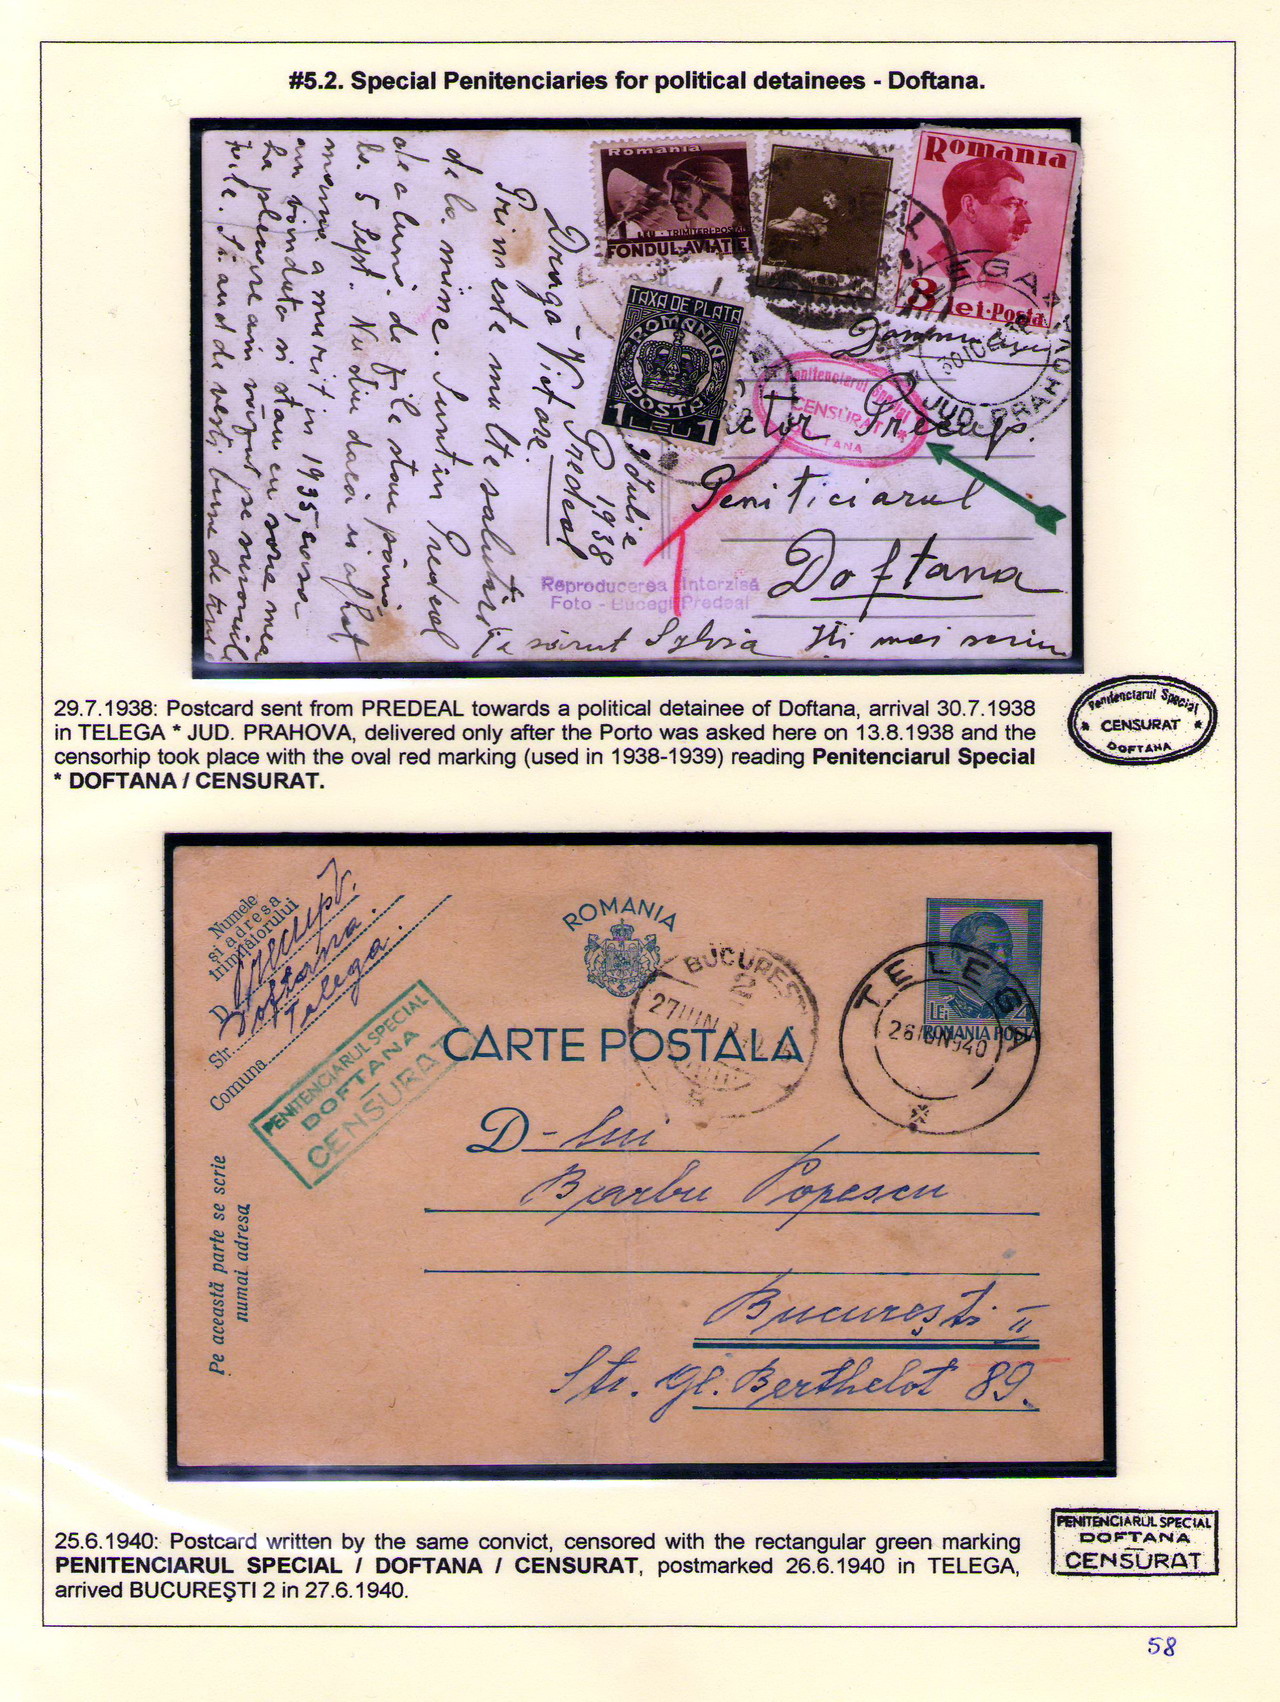 #5.2. Special Penitenciaries for political detainees - Doftana.
Romania
1 LEU · TRIMITERI-POSTALE
FONDUL·AVIAȚIEI
Romania
3 lei·Posta
TAXA DE PLATA
ROMANIA
POSTA
1 LEU 1
Draga Victore.
Predeal
9 Iulie
1938
Primeste multe salutări
de la mine. Sunt in Predeal
de o luni de zile stau până
la 5 Sept. Nu știu daca ai aflat
mama a murit in 1935, casa
am vândut-o si stau cu sora mea
Si aud de vesti bune de
te sărut Sylvia Iti mai scriu
Penitenciarul Special
CENSURAT
DOFTANA
TELEGA * JUD. PRAHOVA
30 IUL
Victor Precup.
Peniticiarul
Doftana
Reproducerea Interzisă
Foto - Bucegi Predeal
29.7.1938: Postcard sent from PREDEAL towards a political detainee of Doftana, arrival 30.7.1938
in TELEGA * JUD. PRAHOVA, delivered only after the Porto was asked here on 13.8.1938 and the
censorhip took place with the oval red marking (used in 1938-1939) reading Penitenciarul Special
* DOFTANA / CENSURAT.
Penitenciarul Special
* CENSURAT *
DOFTANA
Numele
și adresa
trimițătorului
D. Precup V.
Str. Doftana.
Comuna Telega.
PENITENCIARUL SPECIAL
DOFTANA
CENSURAT
Pe această parte se scrie
numai adresa
ROMANIA
CARTE POSTALĂ
BUCUREȘTI
2
27 IUN
TELEGA
26 IUN 940
LEI 4
ROMANIA POSTA
D-lui
Barbu Popescu
București II
Str. Gl. Berthelot 89.
25.6.1940: Postcard written by the same convict, censored with the rectangular green marking
PENITENCIARUL SPECIAL / DOFTANA / CENSURAT, postmarked 26.6.1940 in TELEGA,
arrived BUCUREŞTI 2 in 27.6.1940.
PENITENCIARUL SPECIAL
DOFTANA
CENSURAT
58